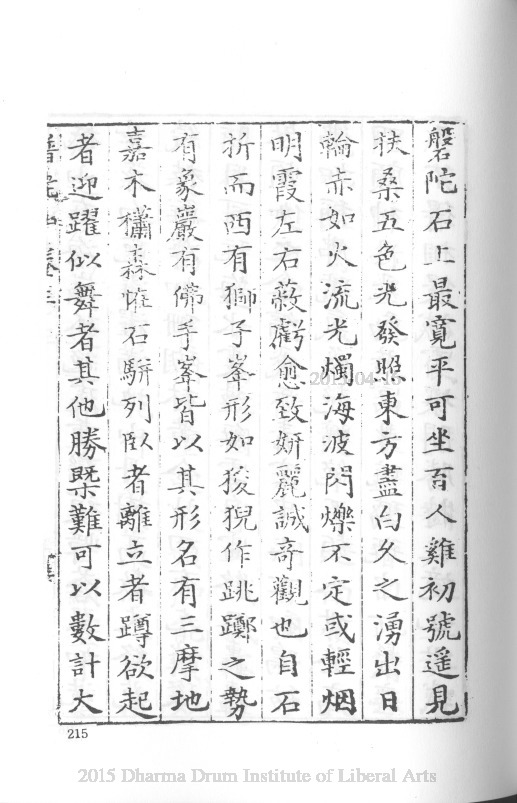 磐陀石上最寬平可坐百人雞初號遥見
扶桑五色光發照東方盡白久之湧出日
輪赤如火流光燭海波閃爍不定或輕烟
明霞左右蔽虧愈致妍麗誠奇觀也自石
折而西有獅子峯形如狻猊作跳躑之勢
有象巖有佛手峯皆以其形名有三摩地
嘉木櫹森惟石駢列臥者離立者蹲欲起
者迎躍似舞者其他勝槩難可以數計大
215
2015-04-15
2015 Dharma Drum Institute of Liberal Arts